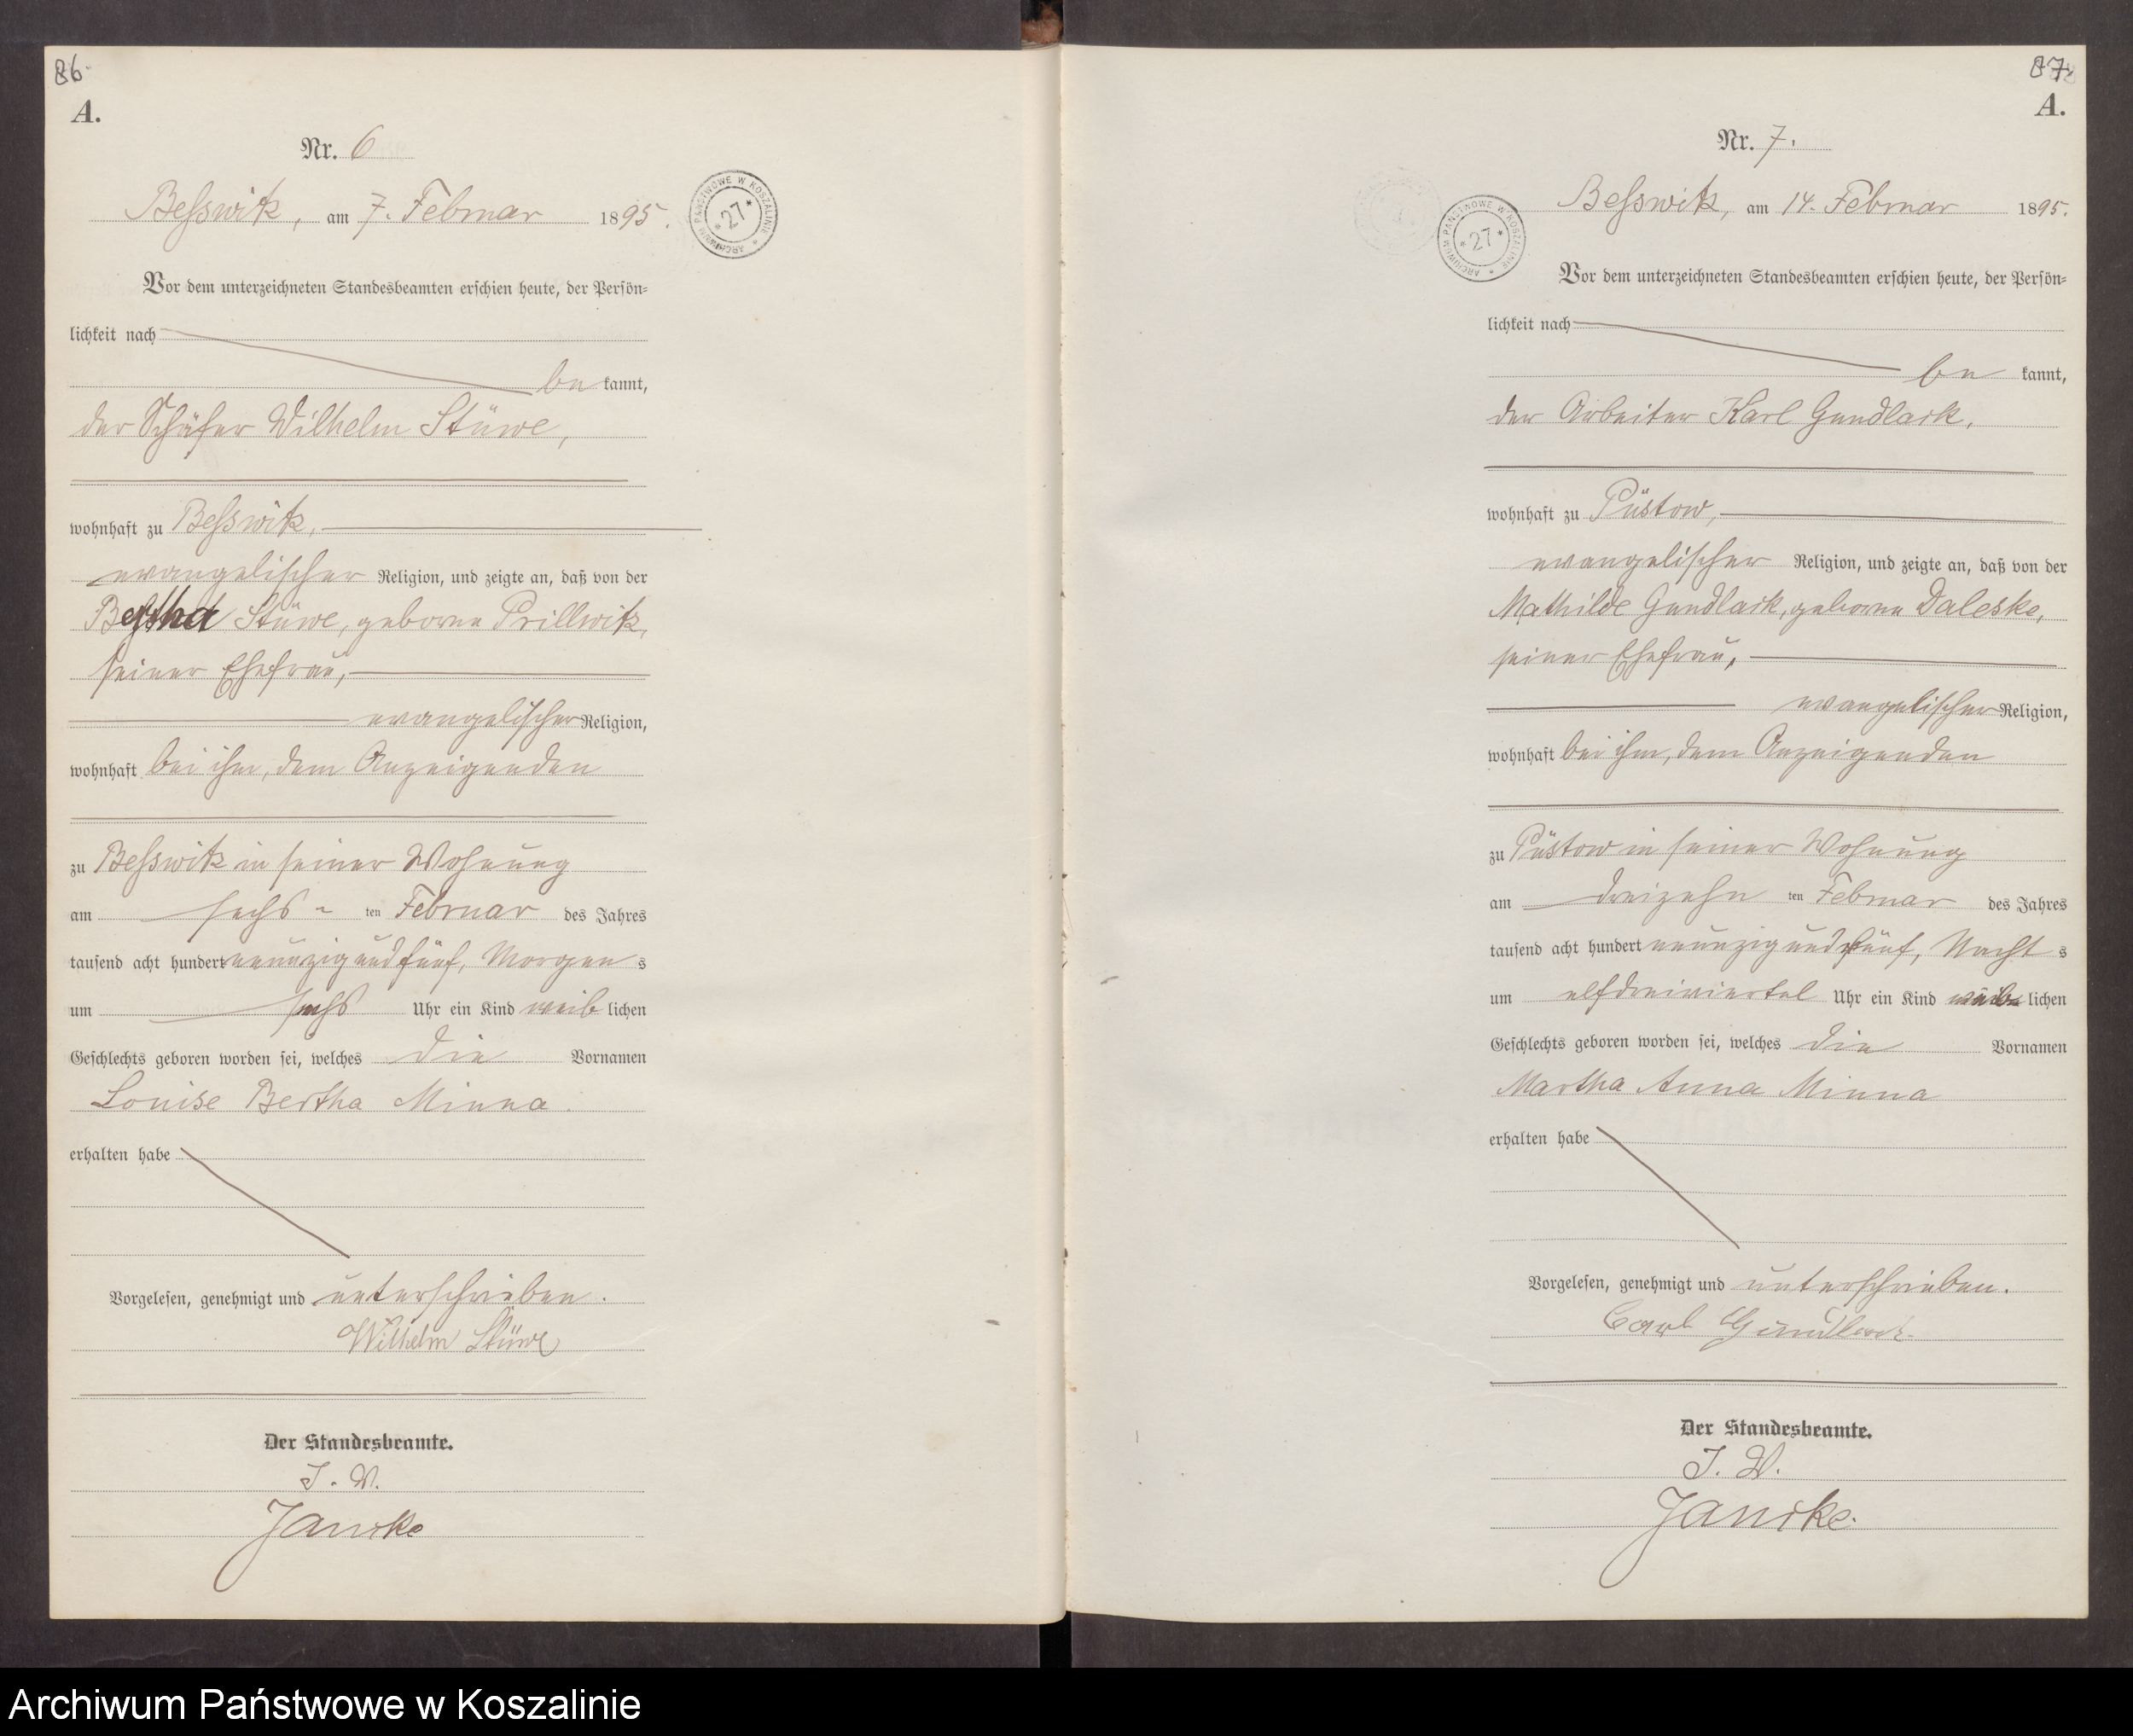 86.
A.
Nr. 6
Beſswitz, am 7. Februar 1895.
ARCHIWUM PAŃSTWOWE W KOSZALINIE * 27 *
Vor dem unterzeichneten Standesbeamten erſchien heute, der Perſön⸗
lichkeit nach
be kannt,
der Schäfer Wilhelm Stüwe,
wohnhaft zu Beſswitz,
evangeliſcher Religion, und zeigte an, daß von der
Bertha Stüwe, geborne Prillwitz,
ſeiner Ehefrau,
evangeliſcher Religion,
wohnhaft bei ihm, dem Anzeigenden
zu Beſswitz in ſeiner Wohnung
am ſechs - ten Februar des Jahres
tauſend acht hundert neunzig und fünf, Morgen s
um ſechs Uhr ein Kind weib lichen
Geſchlechts geboren worden ſei, welches die Vornamen
Louise Bertha Minna.
erhalten habe
Vorgeleſen, genehmigt und unterſchrieben.
Wilhelm Stüwe
Der Standesbeamte.
J. V.
Jancke
87.
A.
Nr. 7.
ARCHIWUM PAŃSTWOWE W KOSZALINIE * 27 *
Beſswitz, am 14. Februar 1895.
Vor dem unterzeichneten Standesbeamten erſchien heute, der Perſön⸗
lichkeit nach
be kannt,
der Arbeiter Karl Gundlack,
wohnhaft zu Püstow,
evangeliſcher Religion, und zeigte an, daß von der
Mathilde Gundlack, geborne Daleske,
ſeiner Ehefrau,
evangeliſcher Religion,
wohnhaft bei ihm, dem Anzeigenden
zu Püstow in ſeiner Wohnung
am dreizehn ten Februar des Jahres
tauſend acht hundert neunzig und fünf, Nacht s
um elfdreiviertel Uhr ein Kind weib lichen
Geſchlechts geboren worden ſei, welches die Vornamen
Martha Anna Minna
erhalten habe
Vorgeleſen, genehmigt und unterſchrieben.
Carl Gundlack.
Der Standesbeamte.
J. V.
Jancke.
Archiwum Państwowe w Koszalinie